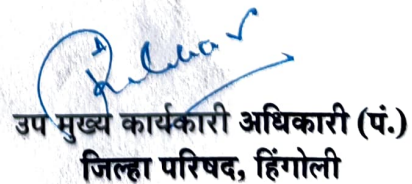 उप मुख्य कार्यकारी अधिकारी (पं.)
जिल्हा परिषद, हिंगोली